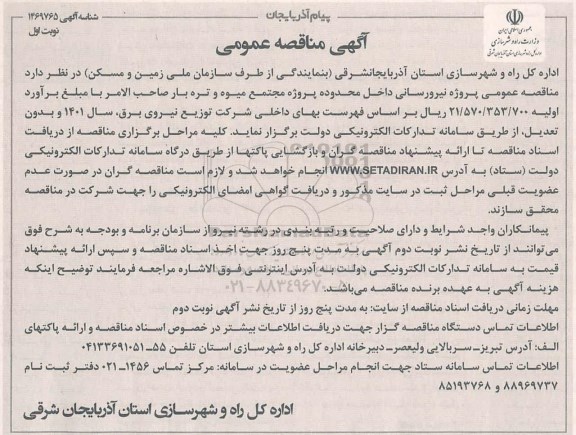 پیام آذربایجان
شناسه آگهی ۱۴۶۹۷۶۵
نوبت اول
جمهوری اسلامی ایران
وزارت راه و شهرسازی
آگهی مناقصه عمومی
اداره کل راه و شهرسازی استان آذربایجانشرقی (بنمایندگی از طرف سازمان ملی زمین و مسکن) در نظر دارد
مناقصه عمومی پروژه نیرورسانی داخل محدوده پروژه مجتمع میوه و تره بار صاحب الامر با مبلغ برآورد
اولیه ۲۱/۵۷۰/۳۵۳/۷۰۰ ریال بر اساس فهرست بهای داخلی شرکت توزیع نیروی برق، سال ۱۴۰۱ و بدون
تعدیل، از طریق سامانه تدارکات الکترونیکی دولت برگزار نماید. کلیه مراحل برگزاری مناقصه از دریافت
اسناد مناقصه تا ارائه پیشنهاد مناقصه گران و بازگشایی پاکتها از طریق درگاه سامانه تدارکات الکترونیکی
دولت (ستاد) به آدرس WWW.SETADIRAN.IR انجام خواهد شد و لازم است مناقصه گران در صورت عدم
عضویت قبلی مراحل ثبت در سایت مذکور و دریافت گواهی امضای الکترونیکی را جهت شرکت در مناقصه
محقق سازند.
پیمانکاران واجد شرایط و دارای صلاحیت و رتبه بندی در رشته نیرو از سازمان برنامه و بودجه به شرح فوق
می‌توانند از تاریخ نشر نوبت دوم آگهی به مدت پنج روز جهت اخذ اسناد مناقصه و سپس ارائه پیشنهاد
قیمت به سامانه تدارکات الکترونیکی دولت به آدرس اینترنتی فوق الاشاره مراجعه فرمایند توضیح اینکه
هزینه آگهی به عهده برنده مناقصه می‌باشد.
۰۲۱-۸۸۳۴۹۶۷۰
مهلت زمانی دریافت اسناد مناقصه از سایت: به مدت پنج روز از تاریخ نشر آگهی نوبت دوم
اطلاعات تماس دستگاه مناقصه گزار جهت دریافت اطلاعات بیشتر در خصوص اسناد مناقصه و ارائه پاکتهای
الف: آدرس تبریز- سربالایی ولیعصر- دبیرخانه اداره کل راه و شهرسازی استان تلفن ۵۵-۰۴۱۳۳۶۹۱۰۵۱
اطلاعات تماس سامانه ستاد جهت انجام مراحل عضویت در سامانه: مرکز تماس ۱۴۵۶-۰۲۱ دفتر ثبت نام
۸۸۹۶۹۷۳۷ و ۸۵۱۹۳۷۶۸
اداره کل راه و شهرسازی استان آذربایجان شرقی